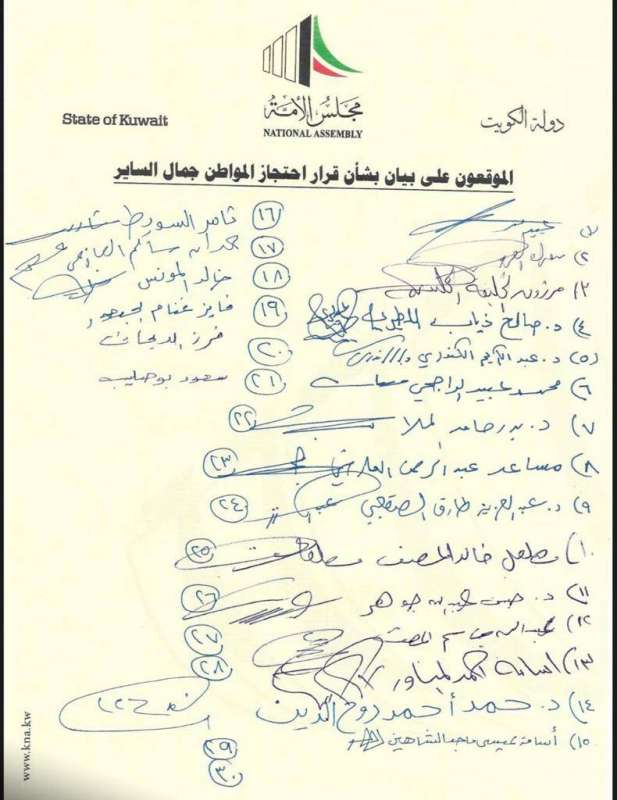 مجلس الأمة
NATIONAL ASSEMBLY
State of Kuwait
دولة الكويت
الموقعون على بيان بشأن قرار احتجاز المواطن جمال الساير
١)
٢)
٣)
٤) د. صالح ذياب المطيري
٥) د. عبدالكريم الكندري
٦) محمد عبيد الراجحي
٧) د. بدر حامد الملا
٨) مساعد عبدالرحمن العارضي
٩) د. عبدالعزيز طارق الصقعبي
١٠) مهلهل خالد المضف
١١) د. حسن عبدالله جوهر
١٢) عبدالله جاسم المضف
١٣) أسامة أحمد المناور
١٤) د. حمد أحمد روح الدين
١٥) أسامة عيسى ماجد الشاهين
١٦ ثامر السويط
١٧ حمدان سالم العازمي
١٨ خالد المونس
١٩ فايز غنام
٢٠ فرز الديحاني
٢١ سعود بوصليب
٢٢
٢٣
٢٤
٢٥
٢٦
٢٧
٢٨
٢٩
٣٠
www.kna.kw